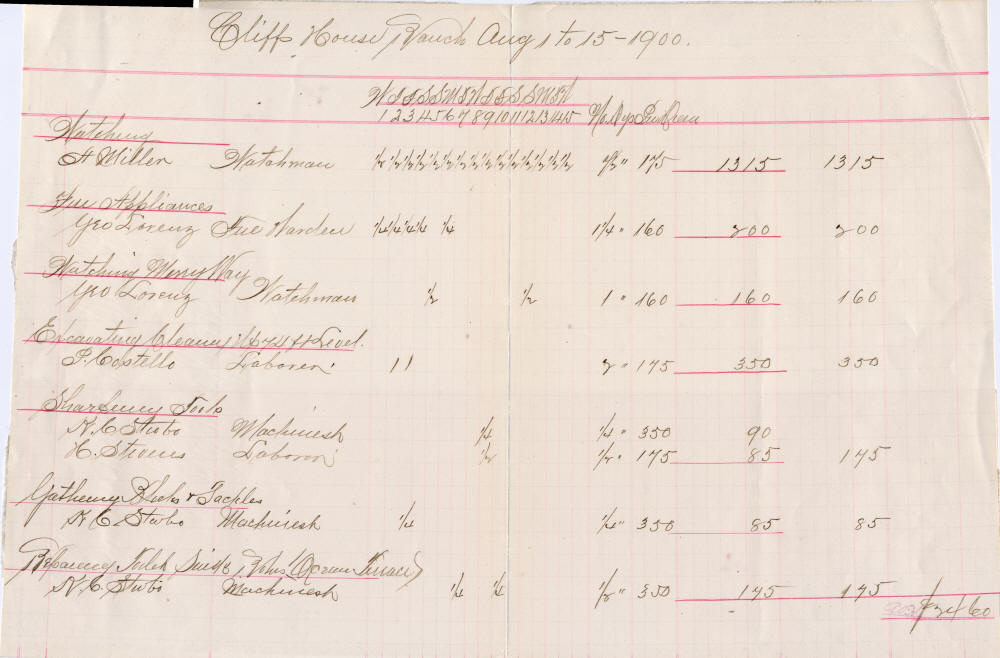 Cliff House Ranch Aug 1 to 15 - 1900.
W T F S S M T W T F S S M T W
1 2 3 4 5 6 7 8 9 10 11 12 13 14 15 No. Dys
Watching
A Miller Watchman ½ ½ ½ ½ ½ ½ ½ ½ ½ ½ ½ ½ ½ ½ ½ 7½ " 175 1315 1315
Fire Appliances
Geo Lorenz Fire Warden ¼ ¼ ¼ ¼ ¼ 1¼ " 160 200 200
Watching Merry Way
Geo Lorenz Watchman ½ ½ 1 " 160 160 160
Excavating Cleaning Level.
P. Costello Laborer 1 1 2 " 175 350 350
Sharpening Tools
K. C. Stubo Machinest ¼ ¼ " 350 90
H. Stivens Laborer ½ ½ " 175 85 175
Gathering Blocks & Tackles
K C Stubo Machinest ¼ ¼ " 350 85 85
Repairing Toilet Baths (Ocean Terrace)
K. C. Stubo Machinest ¼ ¼ ½ " 350 175 175
$2460